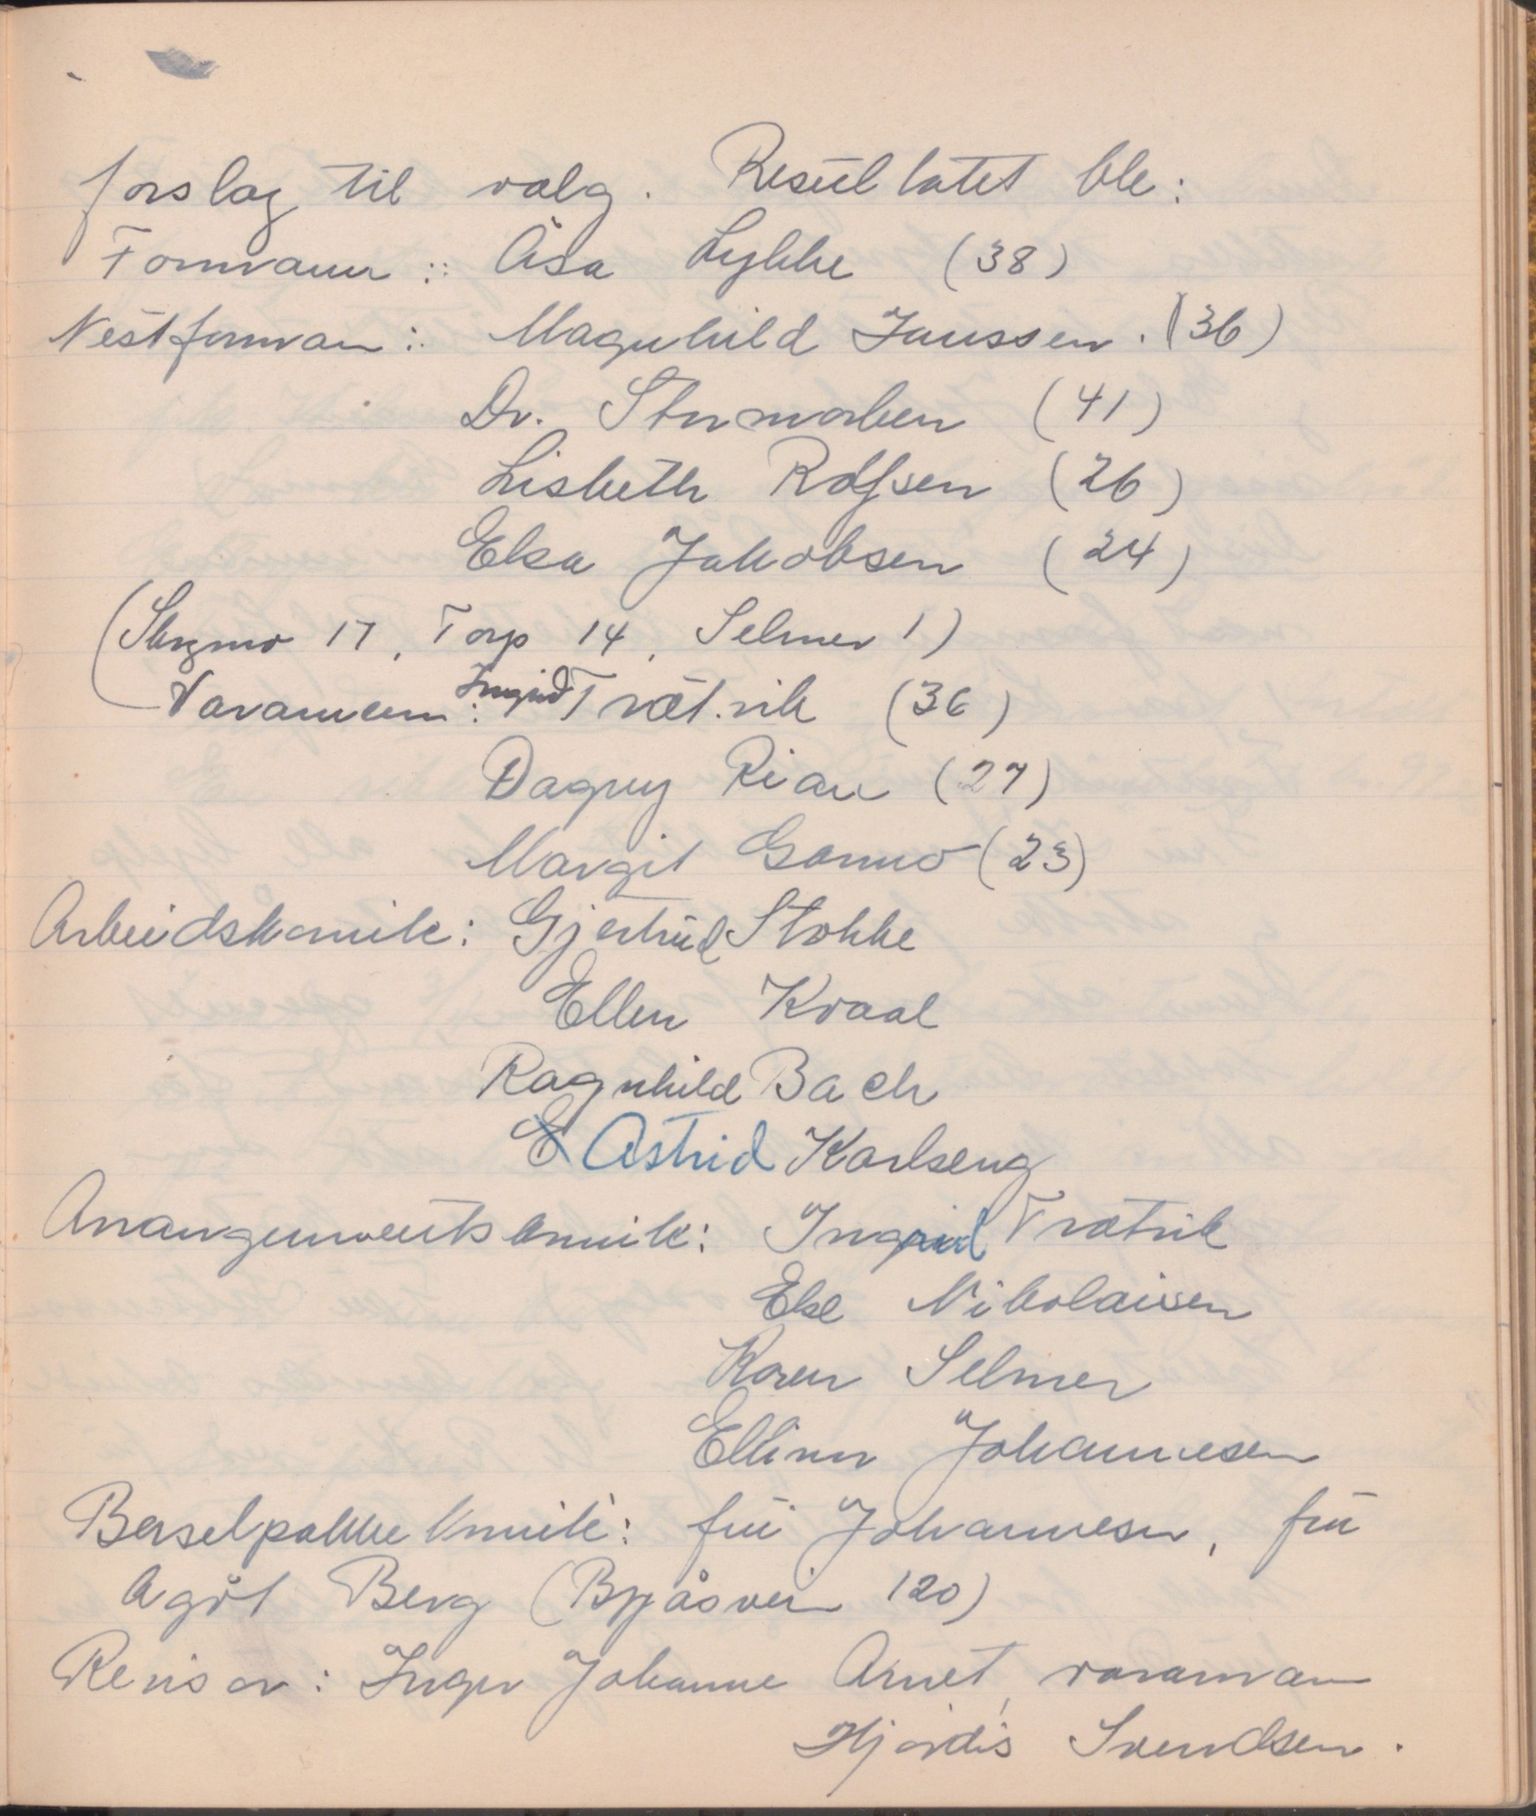 forslag til valg. Resultatet ble:
Formann: Åsa Lykke (38)
Nestforman: Magnhild Janssen. (36)
Dr. Stormorken (41)
Lisbeth Rolfsen (26)
Elsa Jakobsen (24)
(Skrgmo 17, Torp 14, Selmer 1)
Varamenn: Ingrid Trætvik (36)
Dagny Rian (27)
Margit Gomno (23)
Arbeidskomite: Gjertrud Stokke
Ellen Kvaal
Ragnhild Bach
E Astrid Karlseng
Arrangementskomite: Ingrid Trætvik
Else Nikolaisen
Karen Selmer
Ellinor Johannesen
Berselpakkekomite: fru Johannesen, fru
Agót Berg (Byåsvein 120)
Revisor: Inger Johanne Arnet, varaman
Hjørdis Svendsen.